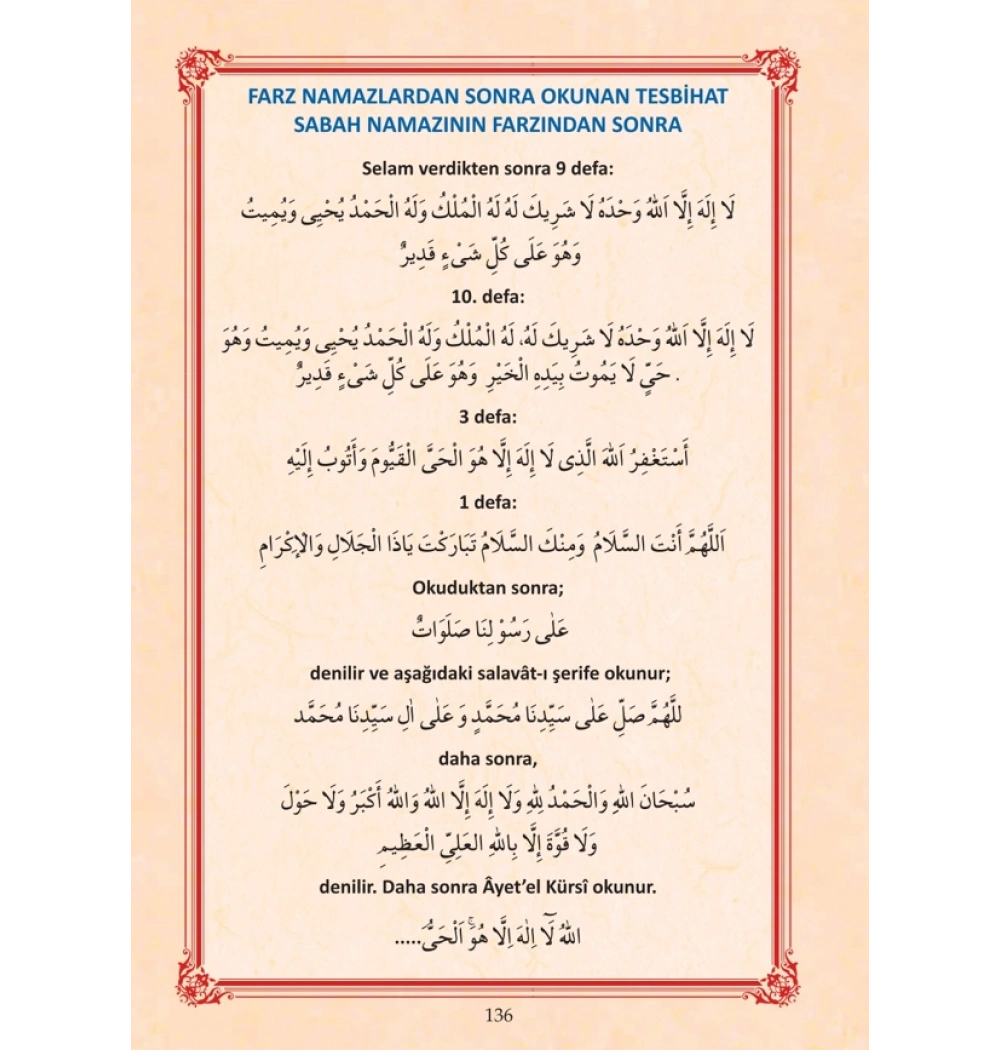 FARZ NAMAZLARDAN SONRA OKUNAN TESBİHAT
SABAH NAMAZININ FARZINDAN SONRA
Selam verdikten sonra 9 defa:
لَا إِلَهَ إِلَّا اَللهُ وَحْدَهُ لَا شَرِيكَ لَهُ لَهُ الْمُلْكُ وَلَهُ الْحَمْدُ يُحْيِى وَيُمِيتُ
وَهُوَ عَلَى كُلِّ شَىْءٍ قَدِيرٌ
10. defa:
لَا إِلَهَ إِلَّا اَللهُ وَحْدَهُ لَا شَرِيكَ لَهُ، لَهُ الْمُلْكُ وَلَهُ الْحَمْدُ يُحْيِى وَيُمِيتُ وَهُوَ
. حَيٌّ لَا يَمُوتُ بِيَدِهِ الْخَيْرِ وَهُوَ عَلَى كُلِّ شَىْءٍ قَدِيرٌ
3 defa:
أَسْتَغْفِرُ اَللهَ الَّذِى لَا إِلَهَ إِلَّا هُوَ الْحَىَّ الْقَيُّومَ وَأَتُوبُ إِلَيْهِ
1 defa:
اَللَّهُمَّ أَنْتَ السَّلَامُ وَمِنْكَ السَّلَامُ تَبَارَكْتَ يَاذَا الْجَلَالِ وَالْاِكْرَامِ
Okuduktan sonra;
عَلٰى رَسُوْ لِنَا صَلَوَاتٌ
denilir ve aşağıdaki salavât-ı şerife okunur;
للَّهُمَّ صَلِّ عَلٰى سَيِّدِنَا مُحَمَّدٍ وَ عَلٰى اٰلِ سَيِّدِنَا مُحَمَّد
daha sonra,
سُبْحَانَ اللهِ وَالْحَمْدُ لِلهِ وَلَا إِلَهَ إِلَّا اللهُ وَاللهُ أَكْبَرُ وَلَا حَوْلَ
وَلَا قُوَّةَ إِلَّا بِاللهِ العَلِىِّ الْعَظِيمِ
denilir. Daha sonra Âyet’el Kürsî okunur.
اَللهُ لَآ اِلٰهَ اِلَّا هُوَۚ اَلْحَىُّ.....
136